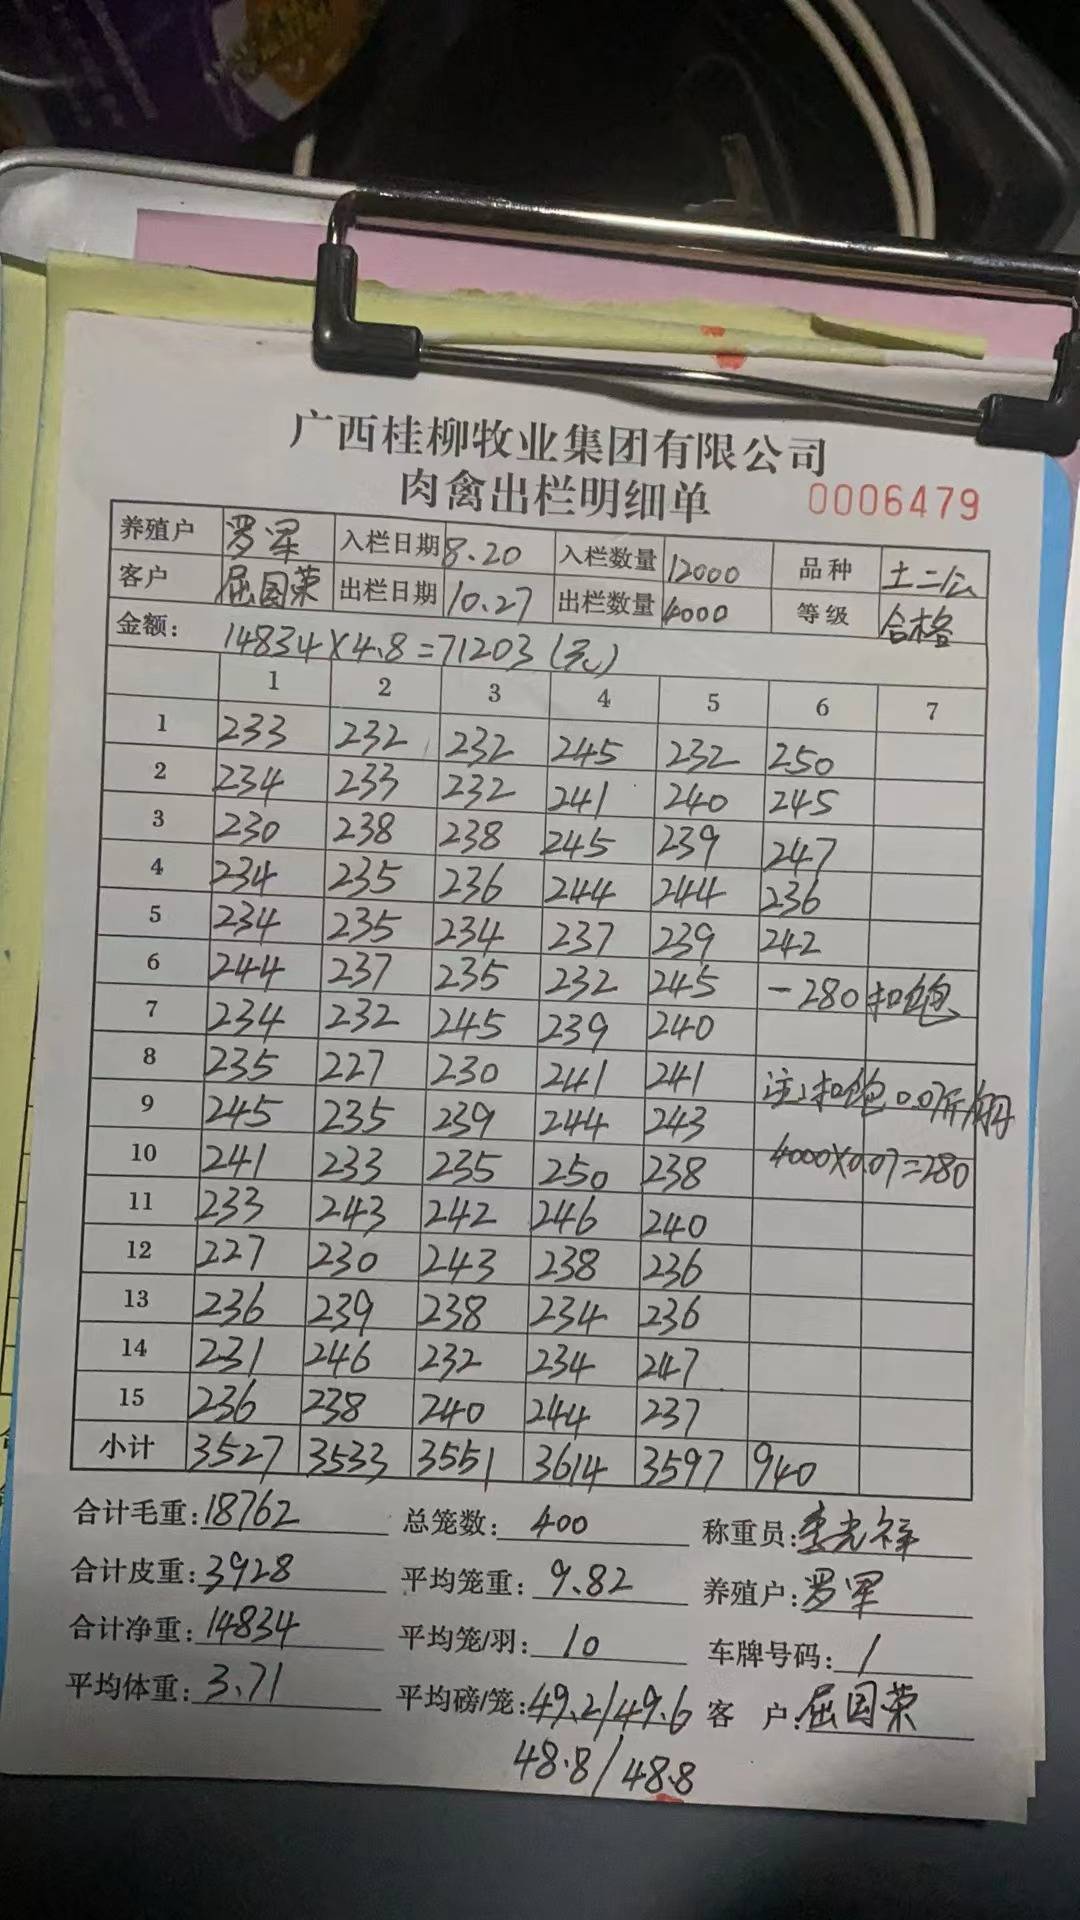 广西桂柳牧业集团有限公司
肉禽出栏明细单 0006479
养殖户 罗军 入栏日期 8.20 入栏数量 12000 品种 土二公
客户 屈国荣 出栏日期 10.27 出栏数量 4000 等级 合格
金额: 14834×4.8=71203(元)
1 2 3 4 5 6 7
1 233 232 232 245 232 250
2 234 233 232 241 240 245
3 230 238 238 245 239 247
4 234 235 236 244 244 236
5 234 235 234 237 239 242
6 244 237 235 232 245 -280扣饱
7 234 232 245 239 240
8 235 227 230 241 241 注:扣饱0.07斤/
9 245 235 239 244 243
10 241 233 235 250 238 4000×0.07=280
11 233 243 242 246 240
12 227 230 243 238 236
13 236 239 238 234 236
14 231 246 232 234 247
15 236 238 240 244 237
小计 3527 3533 3551 3614 3597 940
合计毛重:18762 总笼数:400 称重员:李光祥
合计皮重:3928 平均笼重:9.82 养殖户:罗军
合计净重:14834 平均笼/羽:10 车牌号码:1
平均体重:3.71 平均磅/笼:49.2/49.6 客 户:屈国荣
48.8/48.8